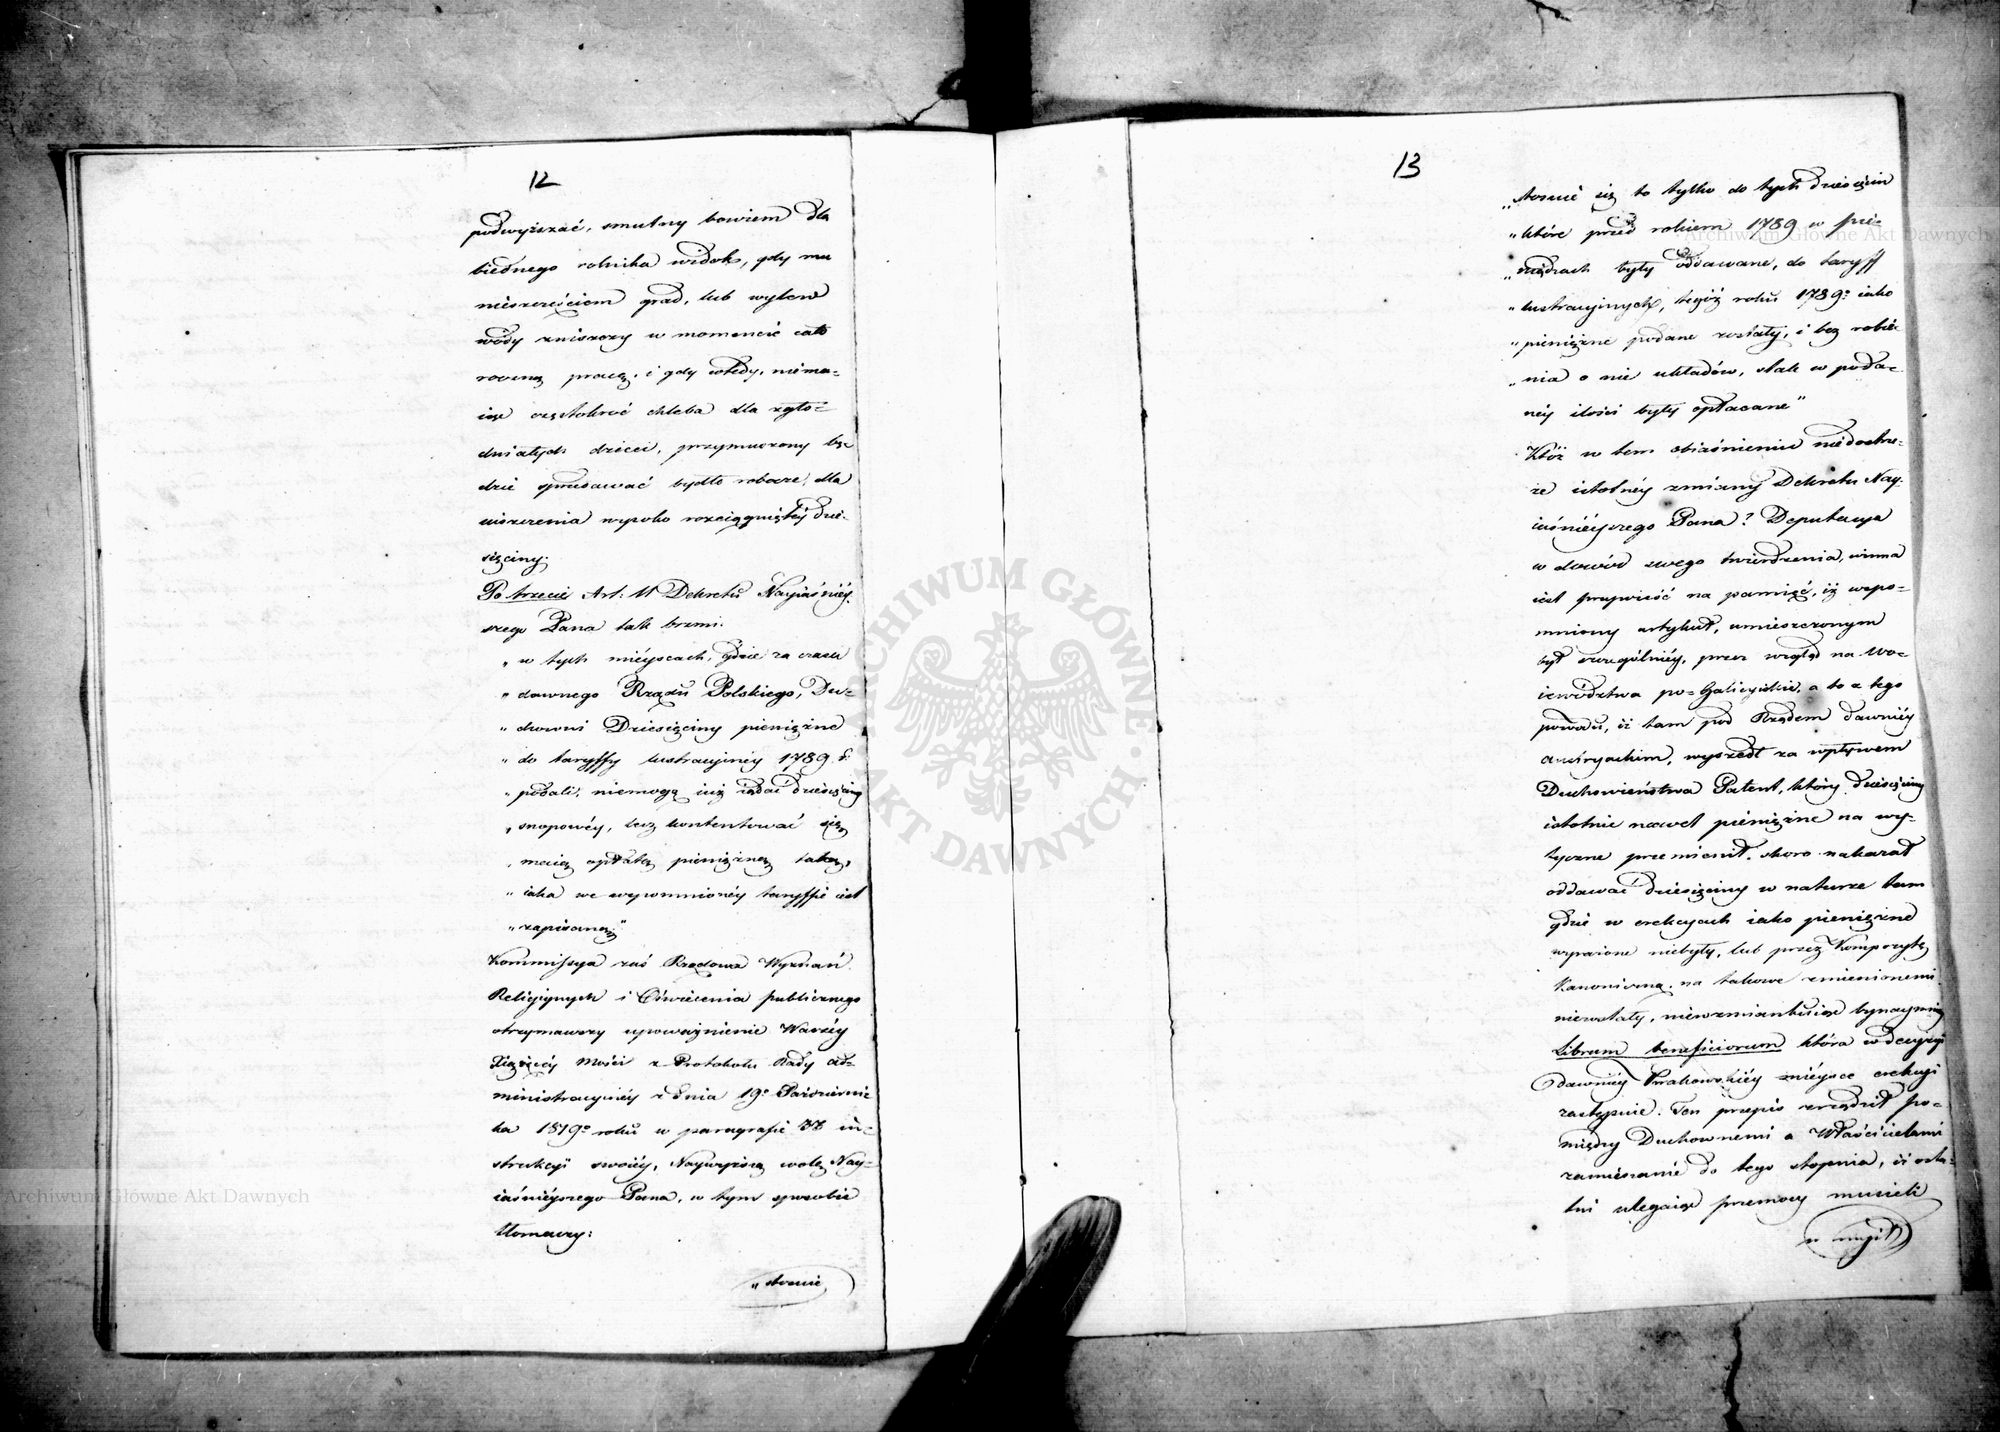 12
podwyższać, smutny bowiem dla
biednego rolnika widok, gdy mu
nieszczęściem grad, lub wylew
wódy zniszczy w momencie cało
roczną pracę, i gdy wtedy, niema-
iąc częstokroć chleba dla zgło-
dniałych dzieci, przymuszony bę-
dzie sprzedawać bydło robocze, dla
uiszczenia wysoko rozciągniętéy dzie-
sięciny.
Po trzecie Art: 11 Dekretu Nayiaśniéy-
szego Pana tak brzmi.
„ w tych miéyscach, gdzie za czasu
„ dawnego Rządu Polskiego, Du-
„ chowni Dziesięciny pieniężne
„ do taryffy lustracyinéy 1789 r.
„ podali, niemogą iuż żądać dziesięciny
„ snopowéy, lecz kontentować się
„ maią opłatą pieniężną taką,
„ iaka we wspomnionéy taryffie iest
„ zapisana."
Kommissya zaś Rządowa Wyznań
Religiynych i Oświecenia publicznego
otrzymawszy upoważnienie Waszéy
Xiążęcéy Mości z Protokołu Rady ad-
ministracyinéy z dnia 19º Październi-
ka 1819º roku w paragrafie 37 in-
strukcyi swoiéy, Naywyższą wolę Nay-
iaśniéyszego Pana, w tym sposobie
tłomaczy:
„ stosuie
13
„ stosuie się to tylko do tych dziesięcin
„ które przed rokiem 1789 w pie-
„ niądzach były oddawane, do taryff
„ lustracyinych, tegoż roku 1789º iako
„ pieniężne podane zostały, i bez robie-
„ nia o nie układów, stale w poda-
néy ilości były opłacane"
Któż w tem obiaśnieniu niedostrze-
że istotnéy zmiany Dekretu Nay-
iaśniéyszego Pana? Deputacya
w dowód swego twierdzenia, winna
iest przywieść na pamięć, iż wspo-
mniony artykuł, umieszczonym
był szczególniéy, przez wzgląd na Wo-
iewództwa po-Galicyiskie, a to z tego
powodu, iż tam pod Rządem dawniéy
austryackim, wyszedł za wpływem
Duchowieństwa Patent, który dziesięciny
istotnie nawet pieniężne na wy-
tyczne przemienił, skoro nakazał
oddawać dziesięciny w naturze tam
gdzie w erekcyach iako pieniężne
wyrażone niebyły, lub przez Kompozytę
Kanoniczną, na takowe zmienionemi
niezostały, niewzmiankuiąc bynaymniéy
Librum beneficiorum która w decyzyi
dawniéy Krakowskiéy miéysce erekcyi
zastępuie. Ten przepis zrządził po-
między Duchownemi a Właścicielami
zamieszanie do tego stopnia, iż osta-
tni ulegaiąc przemocy musieli